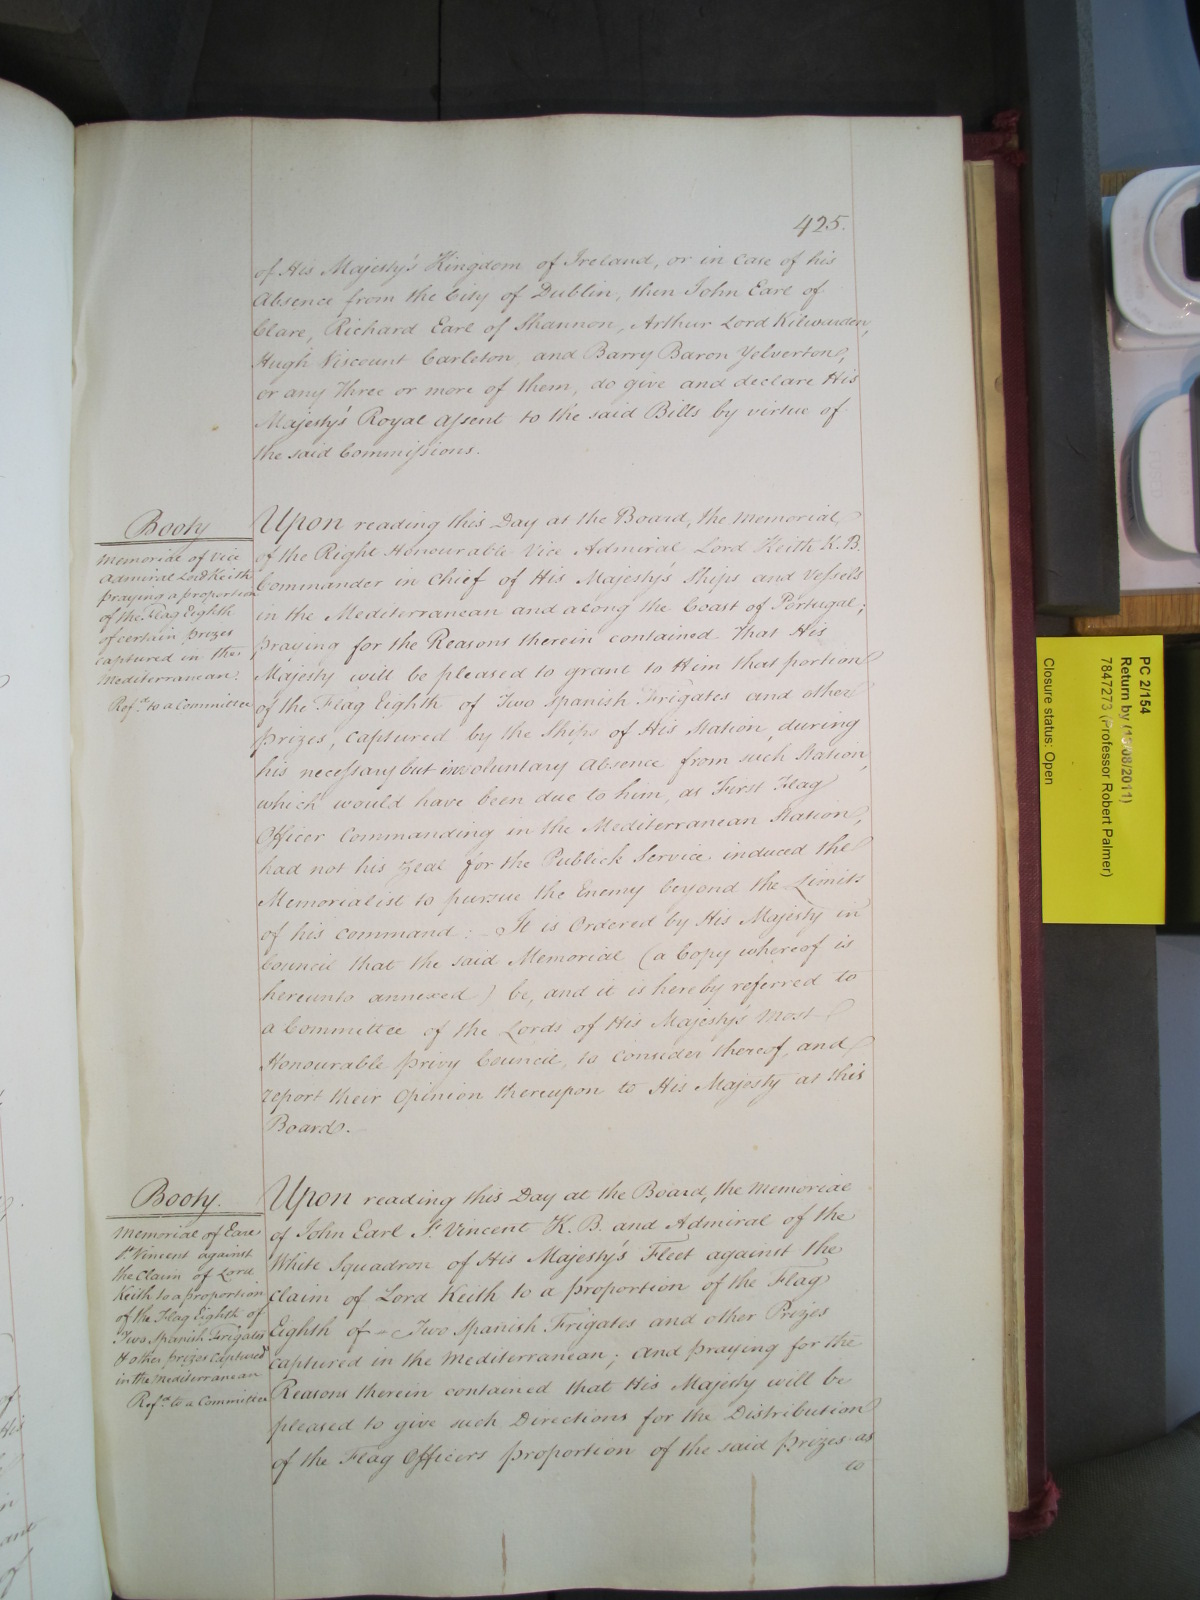 425.
of His Majesty's Kingdom of Ireland, or in Case of his
Absence from the City of Dublin, then John Earl of
Clare, Richard Earl of Shannon, Arthur Lord Kilwarden,
Hugh Viscount Carleton, and Barry Baron Yelverton,
or any Three or more of them, do give and declare His
Majesty's Royal Assent to the said Bills by virtue of
the said Commissions.
Booty
Memorial of Vice
Admiral Lord Keith
praying a proportion
of the Flag Eighth
of certain prizes
captured in the
Mediterranean.
Refd. to a Committee
Upon reading this Day at the Board, the Memorial
of the Right Honourable Vice Admiral Lord Keith K.B.
Commander in Chief of His Majesty's Ships and Vessels
in the Mediterranean and along the Coast of Portugal;
praying for the Reasons therein contained That His
Majesty will be pleased to grant to Him that portion
of the Flag Eighth of Two Spanish Frigates and other
prizes, captured by the Ships of His Station, during
his necessary but involuntary Absence from such Station,
which would have been due to him, as First Flag
Officer Commanding in the Mediterranean Station,
had not his Zeal for the Publick Service induced the
Memorialist to pursue the Enemy beyond the Limits
of his command: It is Ordered by His Majesty in
Council that the said Memorial (a Copy whereof is
hereunto annexed) be, and it is hereby referred to
a Committee of the Lords of His Majesty's Most
Honourable Privy Council, to Consider thereof, and
report their Opinion thereupon to His Majesty at this
Board.
Booty.
Memorial of Earl
St. Vincent against
the Claim of Lord
Keith to a proportion
of the Flag Eighth of
Two Spanish Frigates
& other prizes Captured
in the Mediterranean
Refd. to a Committee
Upon reading this Day at the Board, the Memorial
of John Earl St. Vincent K.B. and Admiral of the
White Squadron of His Majesty's Fleet against the
Claim of Lord Keith to a proportion of the Flag
Eighth of Two Spanish Frigates and other Prizes
captured in the Mediterranean; and praying for the
Reasons therein contained that His Majesty will be
pleased to give such Directions for the Distribution
of the Flag Officers proportion of the said prizes as
to
PC 2/154
Return by (13/08/2011)
7847273 (Professor Robert Palmer)
Closure status: Open